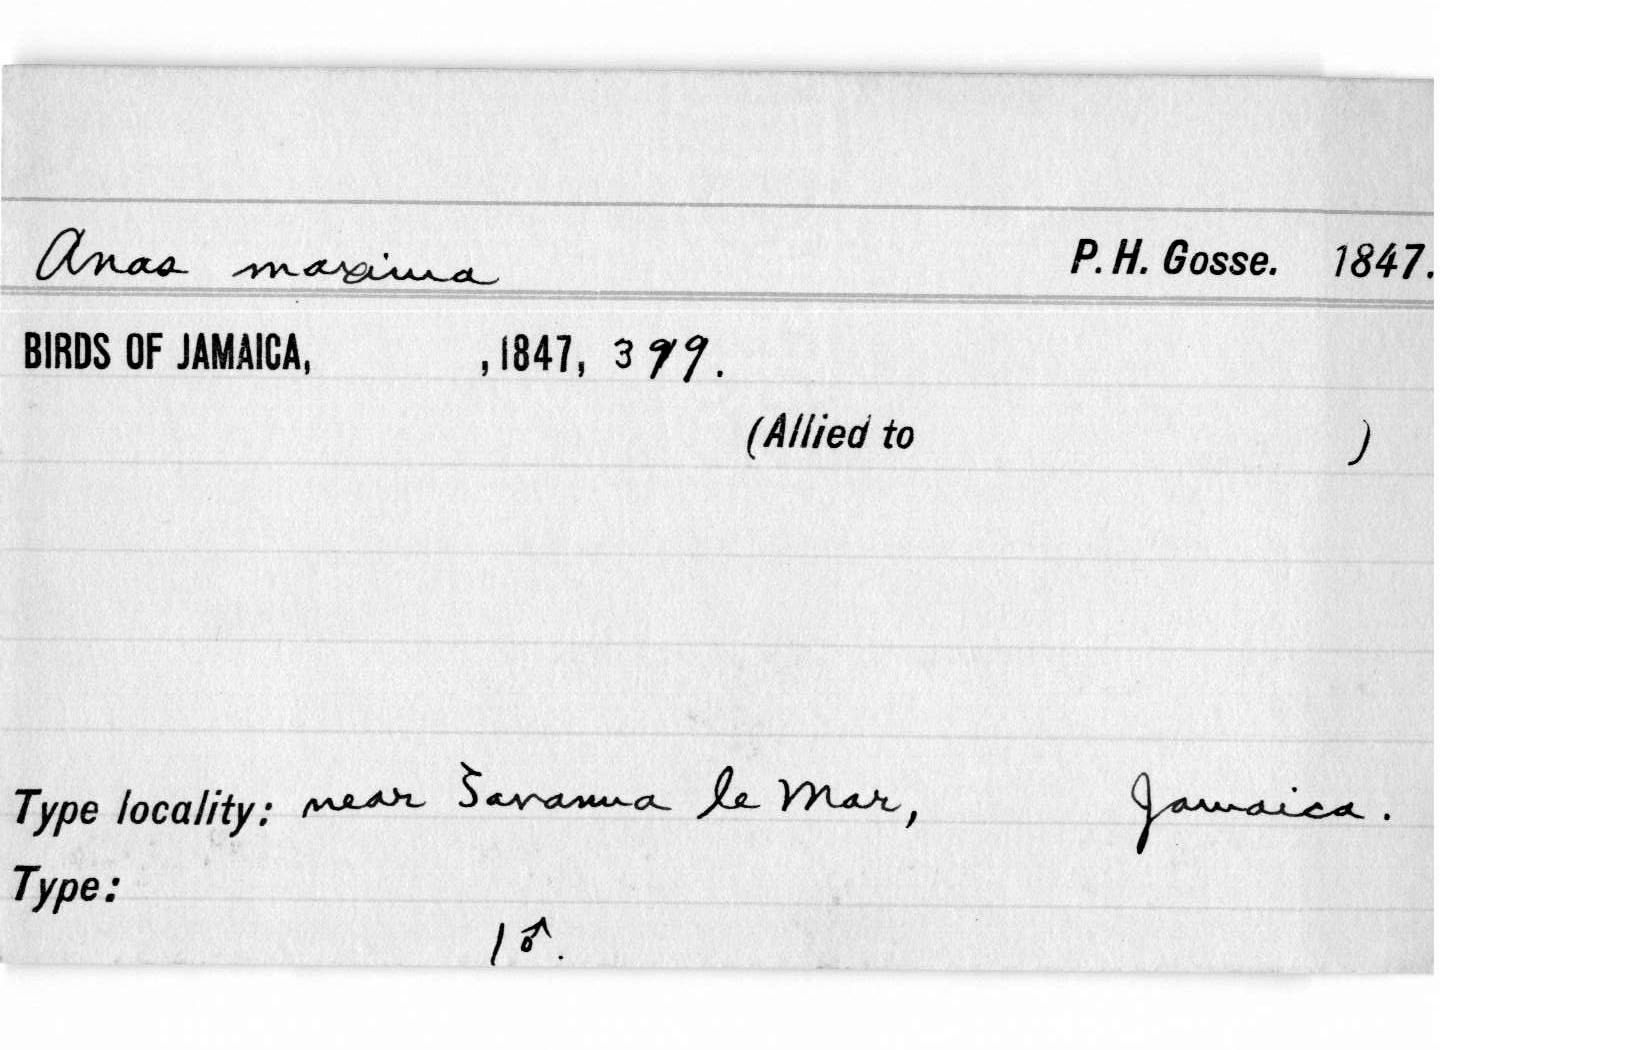 Anas maxima P. H. Gosse. 1847.
BIRDS OF JAMAICA, , 1847, 399.
(Allied to )
Type locality: near Savanna le Mar, Jamaica.
Type:
1 ♂.